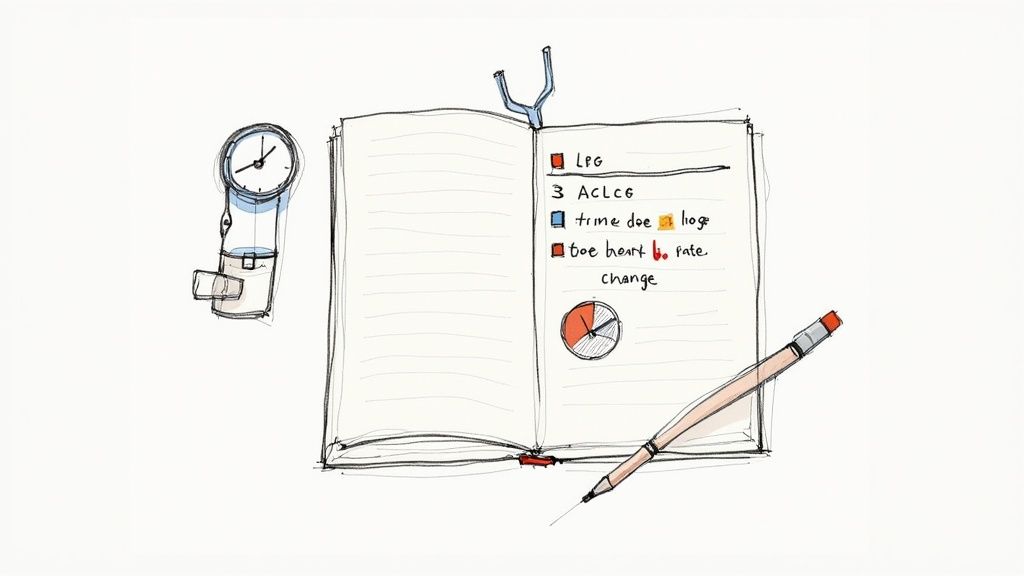 LPG
3 ACLCG
time doe loge
toe heart rate
change